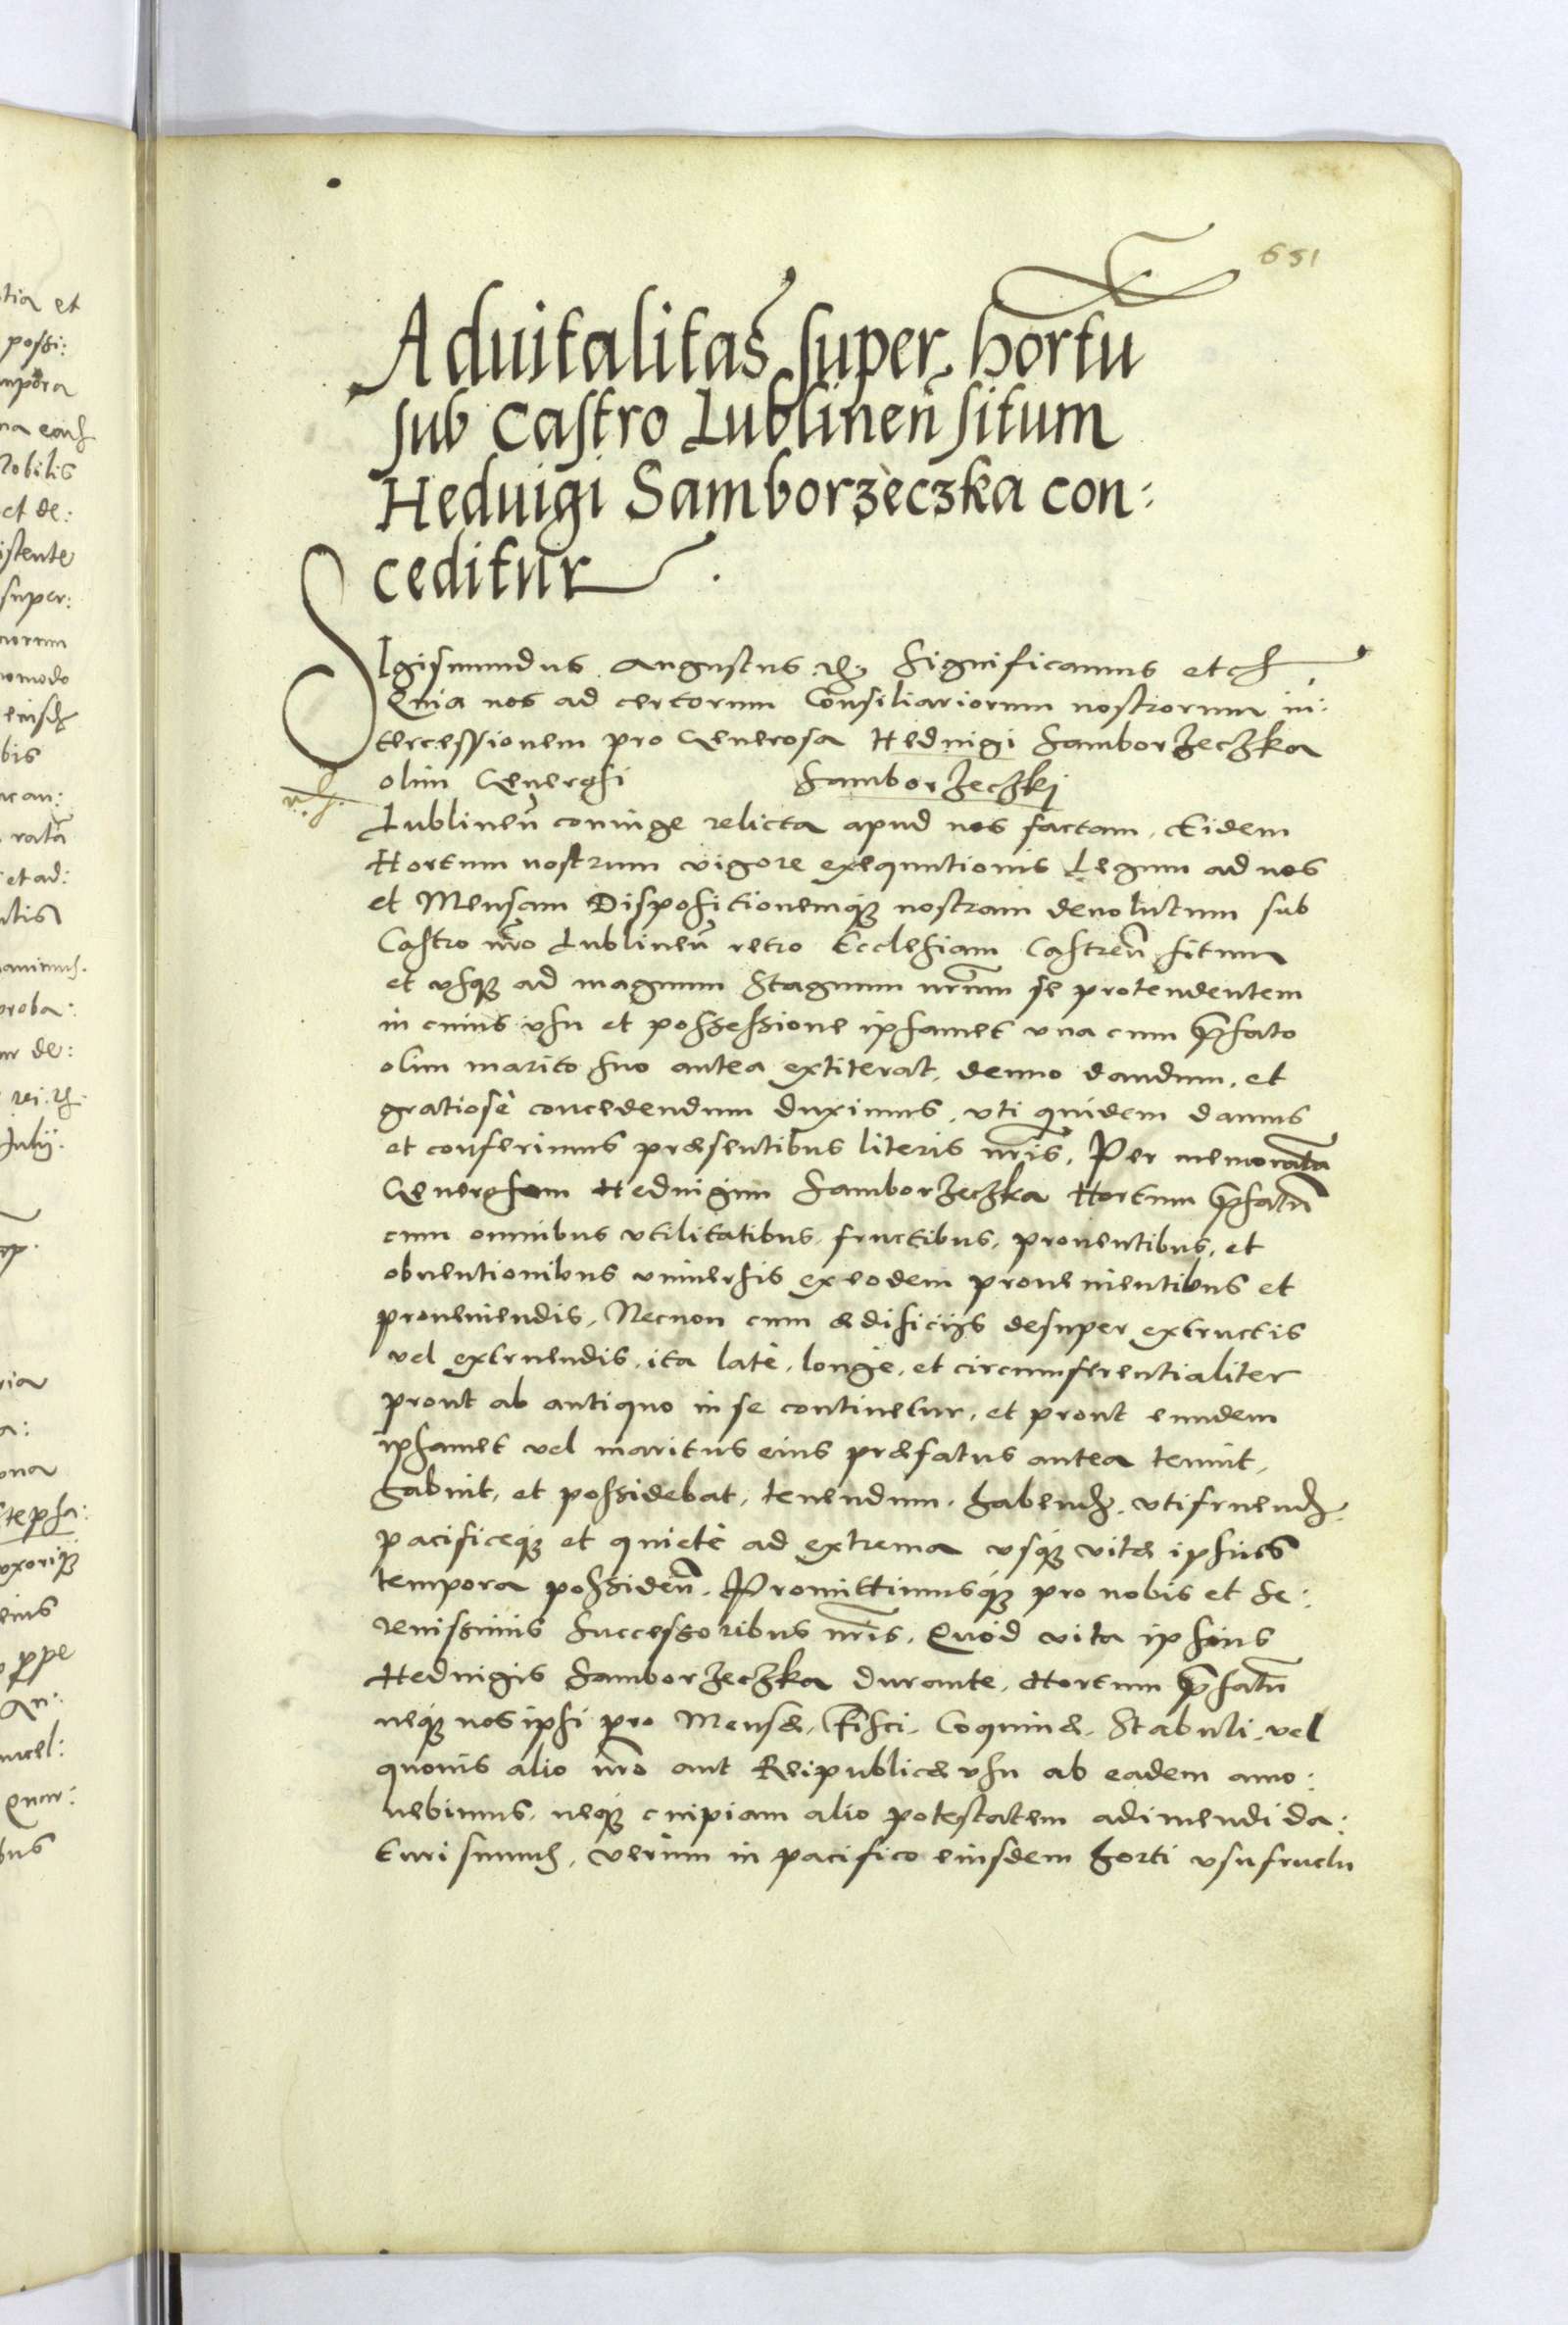 651
Aduitalitas super hortu
sub Castro Lublinen̄ situm
Heduigi Samborzeczka con:
ceditur.
SIgismundus Augustus etc. Significamus etc.
Quia nos ad certorum Consiliariorum nostrorum in:
tercessionem pro Generosa Heduigi Samborzeczka
olim Generosi Samborzeczkj
Lublinen̄ coniuge relicta apud nos factam, Eidem
Hortum nostrum vigore exequutionis Legum ad nos
et Mensam Dispositionemq; nostram deuolutum sub
Castro nr̄o Lublinen̄ retro Ecclesiam Castren̄ situm
et vsq; ad magnum Stagnum nr̄um se protendentem
in cuius vsu et possessione ipsamet vna cum p̄fato
olim marito suo antea extiterat, denuo dandum, et
gratiosè concedendum duximus, vti quidem damus
et conferimus præsentibus literis nr̄is, Per memoratā
Generosam Heduigim Samborzeczka Hortum p̄fatū
cum omnibus vtilitatibus, fructibus, prouentibus, et
obuentionibus vniuersis ex eodem prouenientibus et
proueniendis, Necnon cum ædificijs desuper extructis
vel extruendis, ita latè, longè, et circumferentialiter
prout ab antiquo in se continetur, et prout eundem
ipsamet vel maritus eius præfatus antea tenuit,
habuit, et possidebat, tenendum, habend. vtifruend.
pacificeq; et quietè ad extrema vsq; vitæ ipsius
tempora possiden̄. Promittimusq; pro nobis et Se:
renissimis Successoribus nr̄is, Quòd vita ipsius
Heduigis Samborzeczka durante, Hortum p̄fatū
neq; nos ipsi pro Mensæ, Fisci, Coquinæ, Stabuli, vel
quouis alio nr̄o aut Reipublicæ vsu ab eadem amo:
uebimus, neq; cuipiam alio potestatem adimendi da:
turi sumus, verùm in pacifico eiusdem horti vsufructu